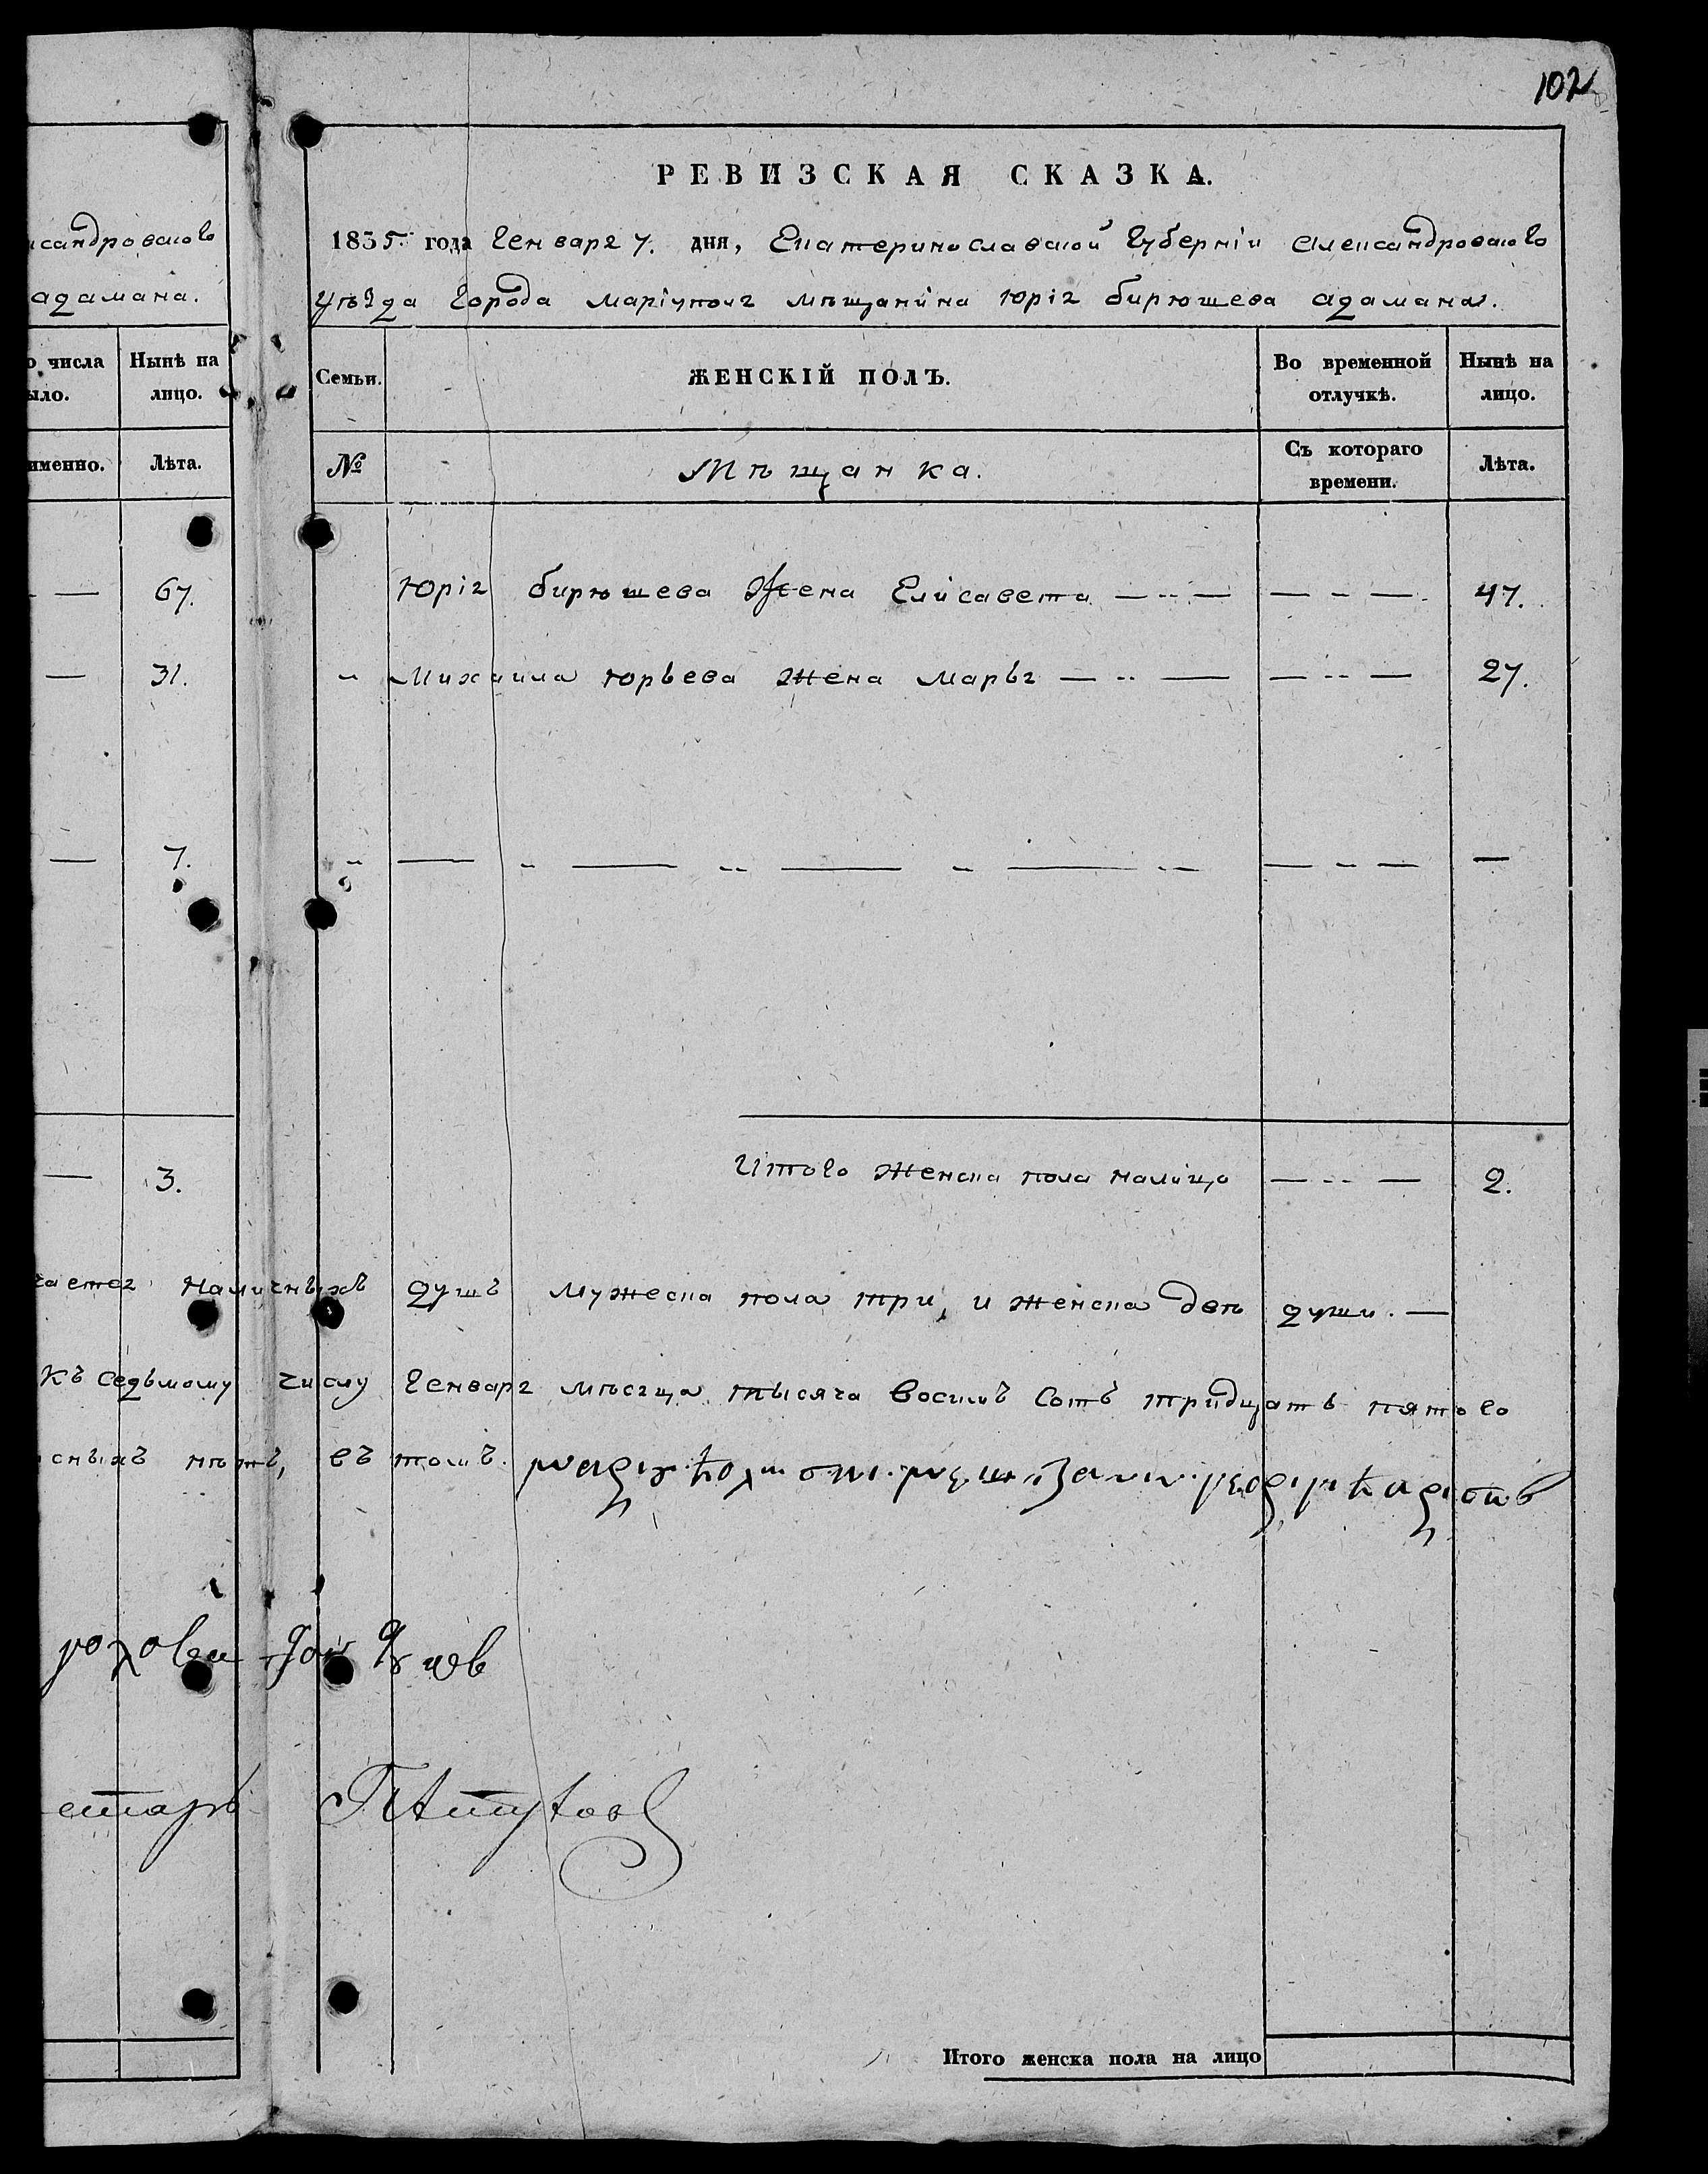 102
исандровскаго
адамана.
о числа
ыло.
Нынѣ на
лицо.
именно.
Лѣта.
67.
31.
7.
3.
РЕВИЗСКАЯ СКАЗКА.
1835. года Генваря 7. дня, Екатеринославской Губерніи Александровскаго
уѣзда города Маріуполя мѣщанина Юрія Бирюшева Адамана.
Семьи.
ЖЕНСКІЙ ПОЛЪ.
Во временной
отлучкѣ.
Нынѣ на
лицо.
№
Мѣщанка.
Съ котораго
времени.
Лѣта.
Юрія Бирюшева Жена Елисавета — — — 47.
Михаила Юрьева Жена Марья — — — 27.
Итого женска пола налицо — — 2.
ается наличныхъ душъ мужеска пола три, и женска двѣ души. —
Къ седьмому числу Генваря мѣсяца тысяча восимъ сотъ тридцать пятого
сныхъ нѣтъ, въ томъ
старъ
Итого женска пола на лицо